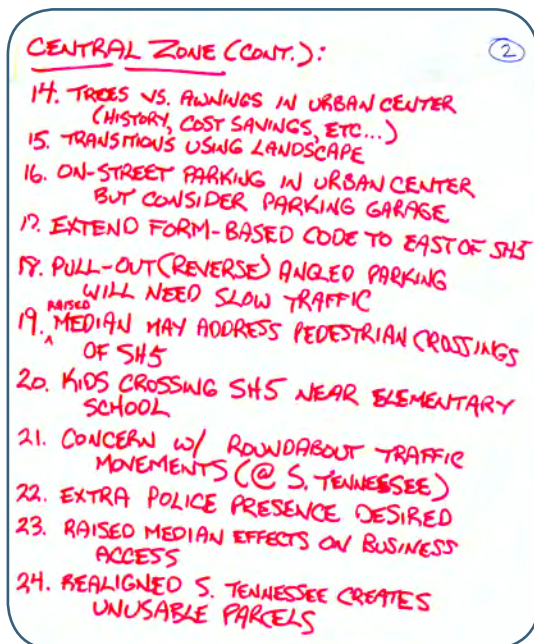 CENTRAL ZONE (CONT.): 2
14. TREES VS. AWNINGS IN URBAN CENTER
(HISTORY, COST SAVINGS, ETC...)
15. TRANSITIONS USING LANDSCAPE
16. ON-STREET PARKING IN URBAN CENTER
BUT CONSIDER PARKING GARAGE
17. EXTEND FORM-BASED CODE TO EAST OF SH5
18. PULL-OUT (REVERSE) ANGLED PARKING
WILL NEED SLOW TRAFFIC
19. RAISED MEDIAN MAY ADDRESS PEDESTRIAN CROSSINGS
OF SH5
20. KIDS CROSSING SH5 NEAR ELEMENTARY
SCHOOL
21. CONCERN W/ ROUNDABOUT TRAFFIC
MOVEMENTS (@ S. TENNESSEE)
22. EXTRA POLICE PRESENCE DESIRED
23. RAISED MEDIAN EFFECTS ON BUSINESS
ACCESS
24. REALIGNED S. TENNESSEE CREATES
UNUSABLE PARCELS